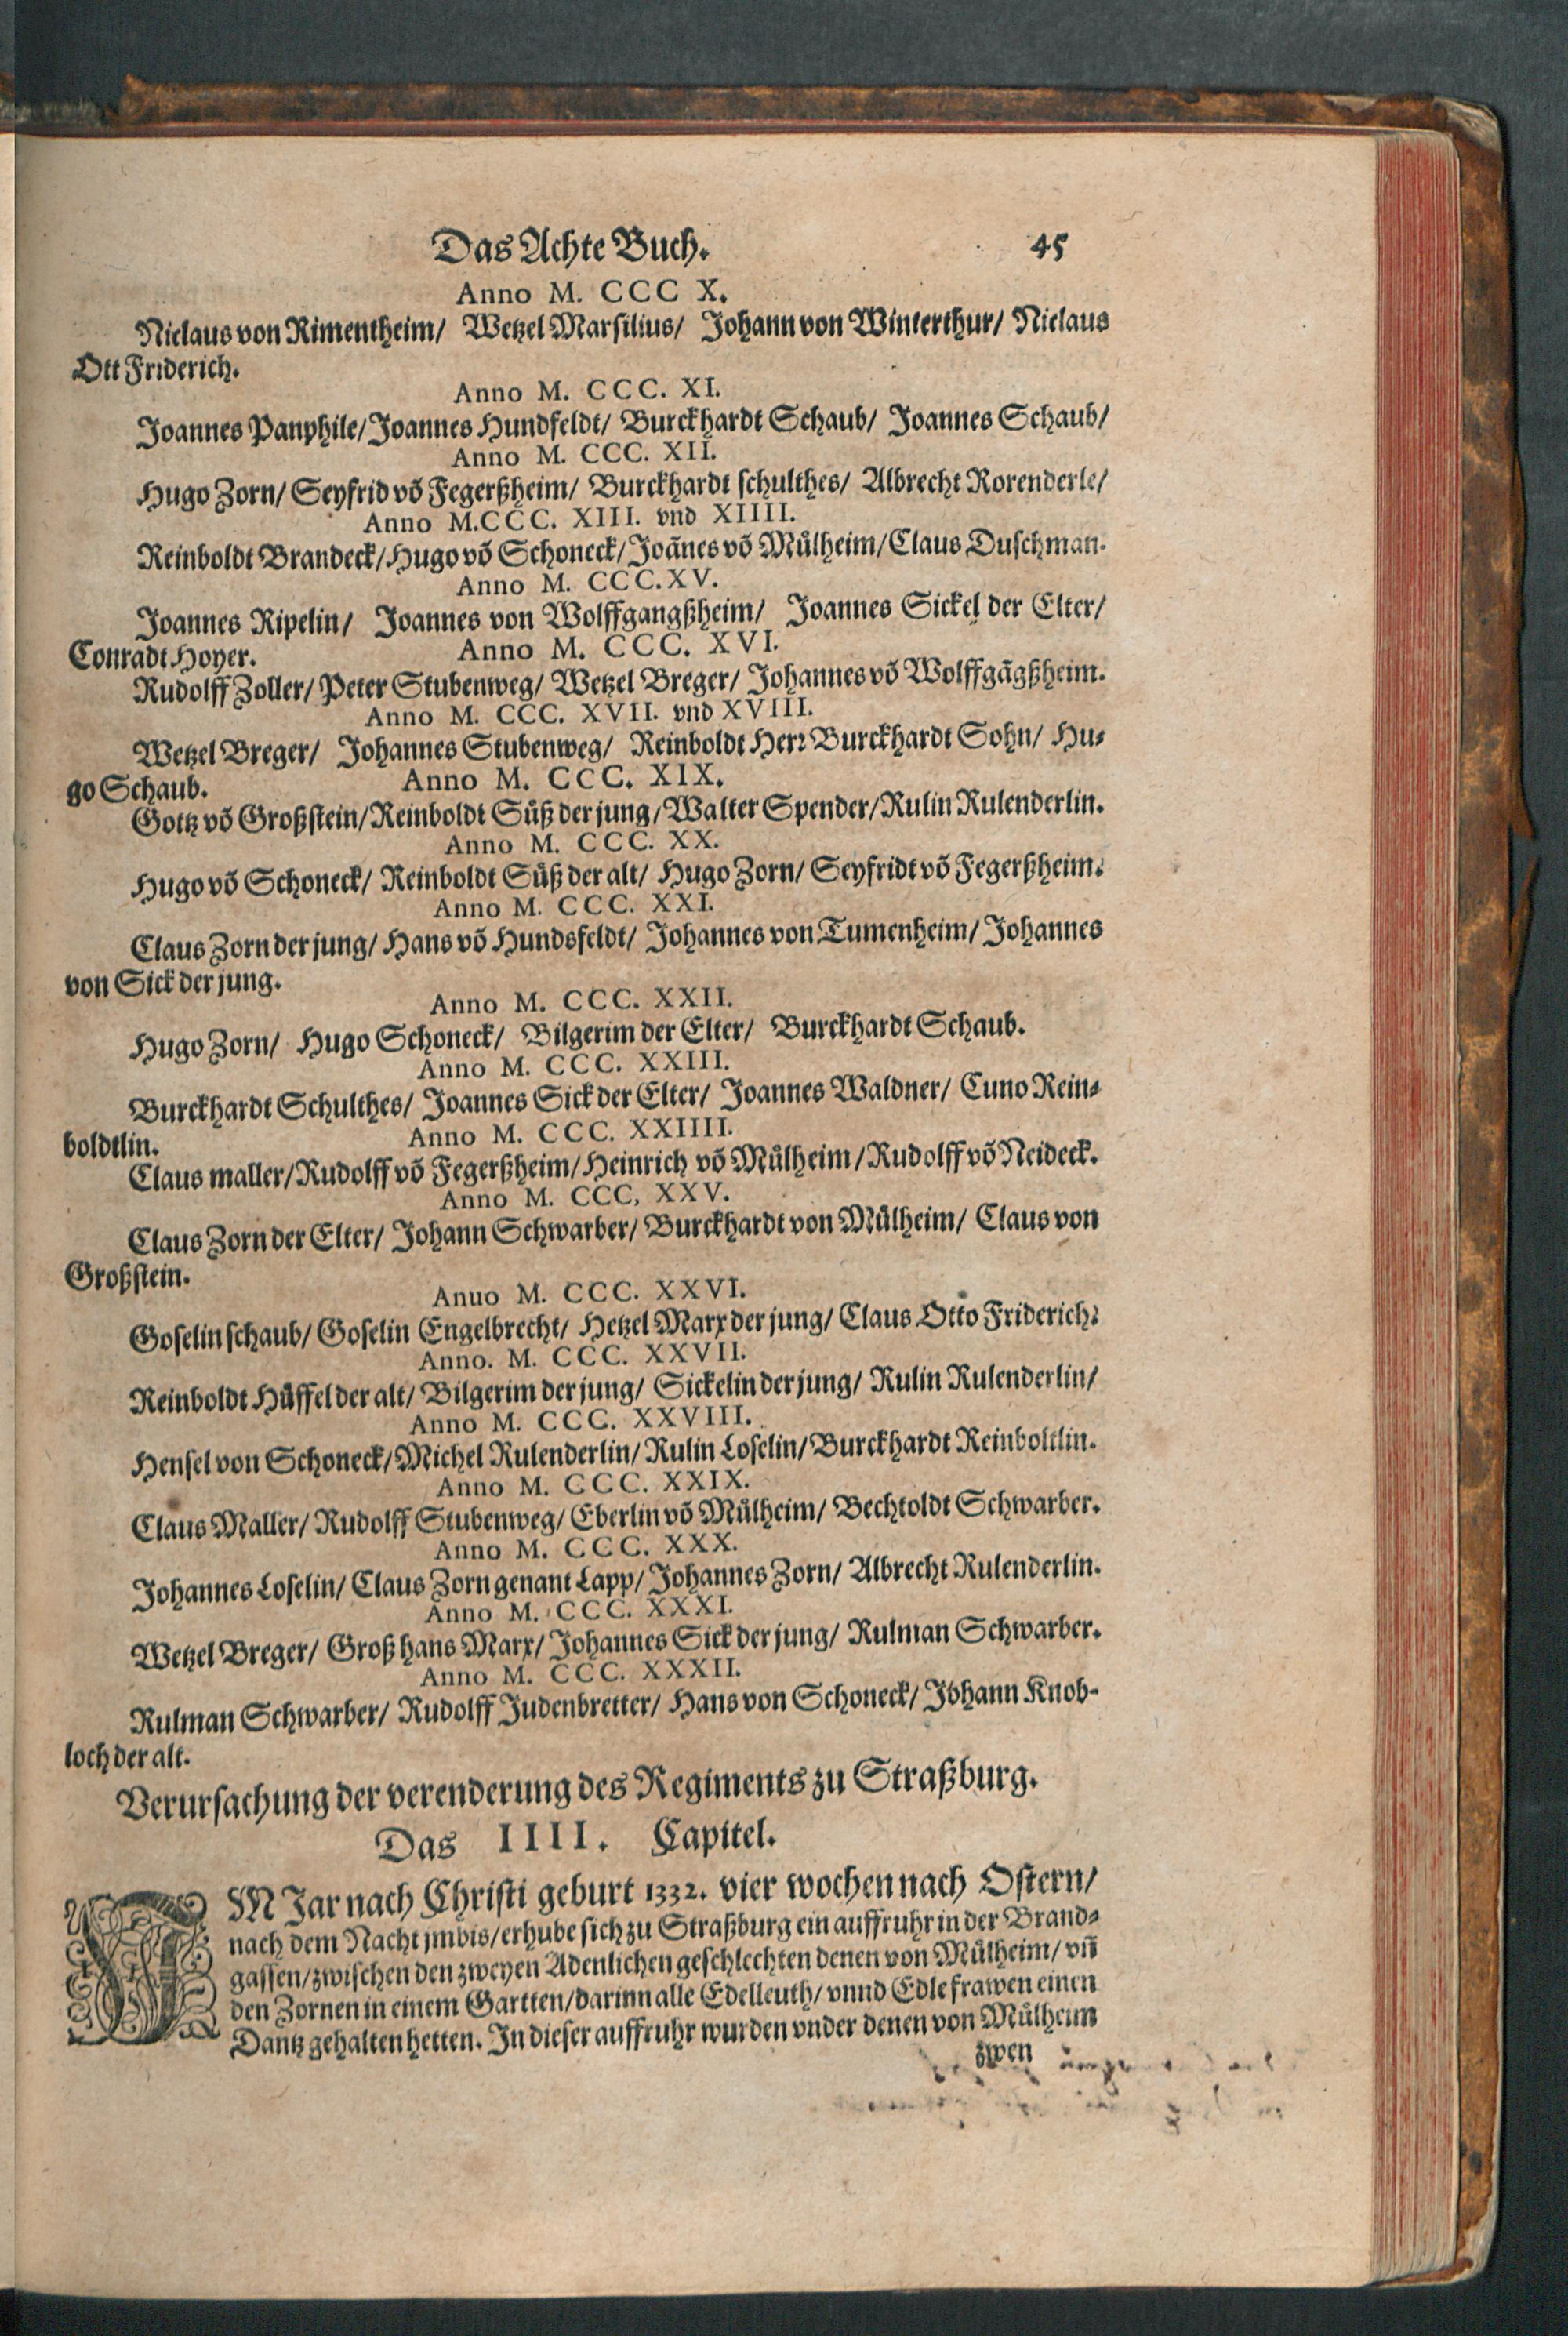 Das Achte Buch. 45
Anno M. CCC X.
Niclaus von Rimentheim/ Wetzel Marsilius/ Johann von Winterthur/ Niclaus
Ott Friderich.
Anno M. CCC. XI.
Joannes Panphile/ Joannes Hundfeldt/ Burckhardt Schaub/ Joannes Schaub/
Anno M. CCC. XII.
Hugo Zorn/ Seyfrid võ Fegerßheim/ Burckhardt schulthes/ Albrecht Rorenderle/
Anno M.CCC. XIII. vnd XIIII.
Reinboldt Brandeck/ Hugo võ Schoneck/ Joãnes võ Muͤlheim/ Claus Duschman.
Anno M. CCC.XV.
Joannes Ripelin/ Joannes von Wolffgangßheim/ Joannes Sickel der Elter/
Conradt Hoyer. Anno M. CCC. XVI.
Rudolff Zoller/ Peter Stubenweg/ Wetzel Breger/ Johannes võ Wolffgãgßheim.
Anno M. CCC. XVII. vnd XVIII.
Wetzel Breger/ Johannes Stubenweg/ Reinboldt Herꝛ Burckhardt Sohn/ Hu⸗
go Schaub. Anno M. CCC. XIX.
Gottz võ Großstein/ Reinboldt Suͤß der jung/ Walter Spender/ Rulin Rulenderlin.
Anno M. CCC. XX.
Hugo võ Schoneck/ Reinboldt Suͤß der alt/ Hugo Zorn/ Seyfridt võ Fegerßheim.
Anno M. CCC. XXI.
Claus Zorn der jung/ Hans võ Hundsfeldt/ Johannes von Tumenheim/ Johannes
von Sick der jung.
Anno M. CCC. XXII.
Hugo Zorn/ Hugo Schoneck/ Bilgerim der Elter/ Burckhardt Schaub.
Anno M. CCC. XXIII.
Burckhardt Schulthes/ Joannes Sick der Elter/ Joannes Waldner/ Cuno Rein⸗
boldtlin. Anno M. CCC. XXIIII.
Claus maller/ Rudolff võ Fegerßheim/ Heinrich võ Muͤlheim/ Rudolff võ Neideck.
Anno M. CCC, XXV.
Claus Zorn der Elter/ Johann Schwarber/ Burckhardt von Muͤlheim/ Claus von
Großstein.
Anuo M. CCC. XXVI.
Goselin schaub/ Goselin Engelbrecht/ Hetzel Marx der jung/ Claus Otto Friderich.
Anno. M. CCC. XXVII.
Reinboldt Huͤffel der alt/ Bilgerim der jung/ Sickelin der jung/ Rulin Rulenderlin/
Anno M. CCC. XXVIII.
Hensel von Schoneck/ Michel Rulenderlin/ Rulin Loselin/ Burckhardt Reinboltlin.
Anno M. CCC. XXIX.
Claus Maller/ Rudolff Stubenweg/ Eberlin võ Muͤlheim/ Bechtoldt Schwarber.
Anno M. CCC. XXX.
Johannes Loselin/ Claus Zorn genant Lapp/ Johannes Zorn/ Albrecht Rulenderlin.
Anno M. CCC. XXXI.
Wetzel Breger/ Groß hans Marx/ Johannes Sick der jung/ Rulman Schwarber.
Anno M. CCC. XXXII.
Rulman Schwarber/ Rudolff Judenbretter/ Hans von Schoneck/ Johann Knob-
loch der alt.
Verursachung der verenderung des Regiments zu Straßburg.
Das IIII. Capitel.
IM Jar nach Christi geburt 1332. vier wochen nach Ostern/
nach dem Nacht jmbis/ erhube sich zu Straßburg ein auffruhr in der Brand⸗
gassen/ zwischen den zweyen Adenlichen geschlechten denen von Muͤlheim/ vñ
den Zornen in einem Gartten/ darinn alle Edelleuth/ vnnd Edle frawen einen
Dantz gehalten hetten. In dieser auffruhr wurden vnder denen von Muͤlheim
zwen